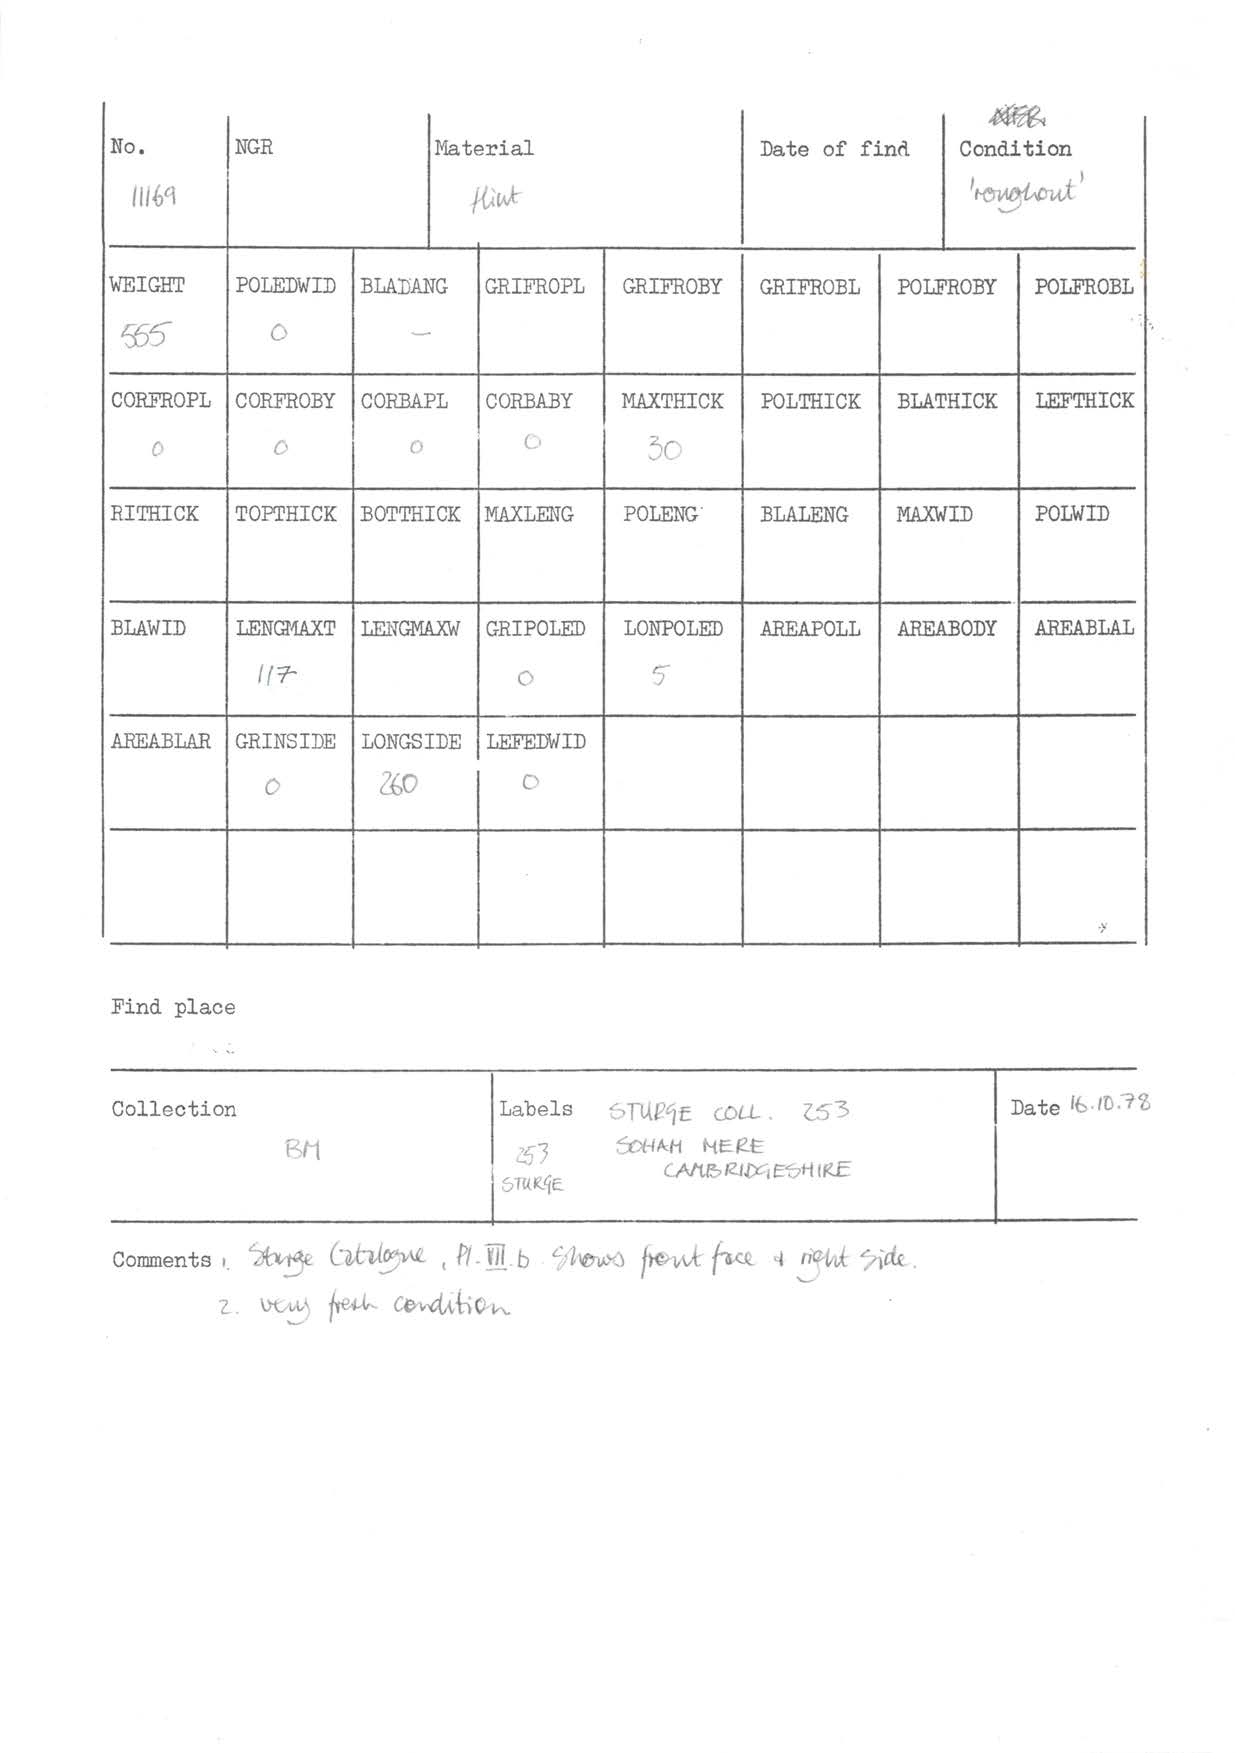 No. NGR Material Date of find Condition
11169 flint 'roughout'
WEIGHT POLEDWID BLADANG GRIFROPL GRIFROBY GRIFROBL POLFROBY POLFROBL
555 0 —
CORFROPL CORFROBY CORBAPL CORBABY MAXTHICK POLTHICK BLATHICK LEFTHICK
0 0 0 0 30
RITHICK TOPTHICK BOTTHICK MAXLENG POLENG BLALENG MAXWID POLWID
BLAWID LENGMAXT LENGMAXW GRIPOLED LONPOLED AREAPOLL AREABODY AREABLAL
117 0 5
AREABLAR GRINSIDE LONGSIDE LEFEDWID
0 260 0
Find place
Collection Labels STURGE COLL. 253 Date 16.10.78
BM 253 SOHAM MERE
STURGE CAMBRIDGESHIRE
Comments 1. Sturge Catalogue, Pl. VII.b. Shows front face + right side.
2. very fresh condition